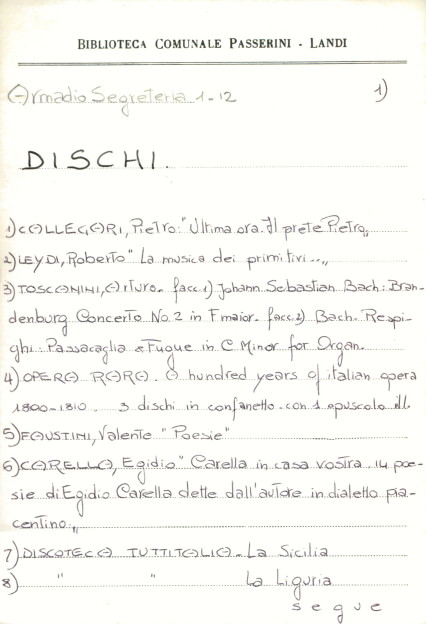 BIBLIOTECA COMUNALE PASSERINI - LANDI
Armadio Segreteria 1-12 1)
DISCHI.
1) CALLEGARI, Pietro: "Ultima ora. Il prete Pietro„
2) LEYDI, Roberto "La musica dei primitivi...„
3) TOSCANINI, Arturo. facc. 1) Johann Sebastian Bach: Bran-
denburg Concerto No. 2 in F maior. facc. 2) Bach. Respi-
ghi: Passacaglia & Fugue in C Minor for Organ.
4) OPERA RARA. A hundred years of italian opera
1800-1810. 3 dischi in confanetto. con 1 opuscolo ill.
5) FAUSTINI, Valente "Poesie"
6) CARELLA, Egidio "Carella in casa vostra. 14 poe-
sie di Egidio Carella dette dall'autore in dialetto pia-
centino„
7) DISCOTECA TUTTITALIA. La Sicilia
8) " " La Liguria
segue